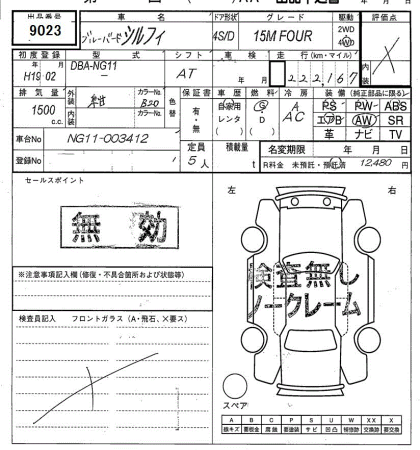 出品番号 車名 ドア形状 グレード 駆動 評価点
9023 ブルーバード シルフィ 4S/D 15M FOUR 2WD 4WD
初度登録 型式 シフト 車検 走行(km・マイル) 内装
年 月 DBA-NG11 AT 年 月 222167
H19 02 -
排気量 外装 紺 カラーNo. B20 色替 保証書 車歴 燃料 冷房 装備(純正部品に限る)
1500 c.c. 内装 カラーNo. 有・無 自家用 G A PS PW ABS
レンタ D AC エアB AW SR
( ) ( ) 革 ナビ TV
車台No NG11-003412 定員 積載量 名変期限 年 月 日
登録No 5人 t R料金 未預託・預託済 12,480円
セールスポイント 左 右
無効
検査無し
ノークレーム
※注意事項記入欄(修復・不具合箇所および状態等)
検査員記入 フロントガラス(A・飛石、×要ス)
スペア
A B C P S U W X XX
線キズ 要板金 腐蝕 要塗装 サビ 凹凸 補修跡 交換跡 要交換